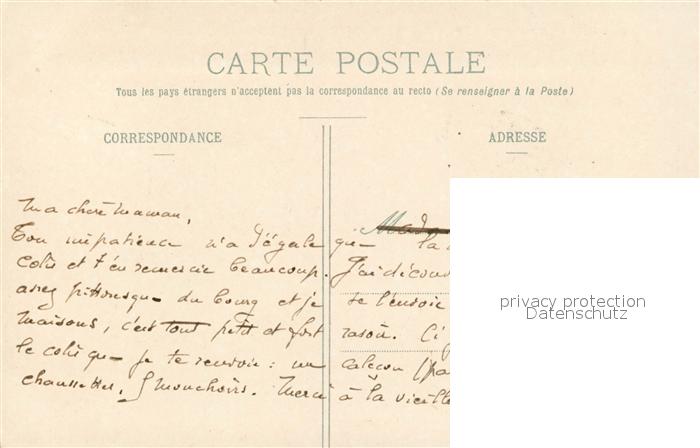 CARTE POSTALE
Tous les pays étrangers n'acceptent pas la correspondance au recto (Se renseigner à la Poste)
CORRESPONDANCE
ADRESSE
Ma chère maman,
Ton impatience n'a d'égale que la
colis et t'en remercie beaucoup. J'ai découv
assez pittoresque du bourg et je te l'envoie
maisons, c'est tout petit et fort rasoir. Ci
le colis que je te renvoie : un caleçon, 1 pa
chaussettes, 5 mouchoirs. Merci à la vieille
privacy protection
Datenschutz